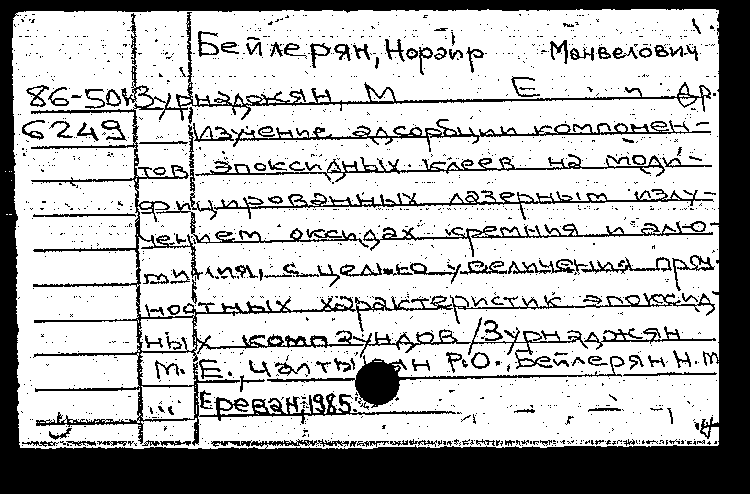 Бейлерян, Норайр Манвелович
86-50К Зурнаджян, М Е и др.
6249 Изучение адсорбции компонен-
тов эпоксидных клеев на моди-
фицированных лазерным излу-
чением оксидах кремния и алю-
миния, с целью увеличения проч-
ностных характеристик эпоксид-
ных компаундов / Зурнаджян
М. Е., Чалтыкян Р.О., Бейлерян Н.М
... Ереван, 1985.